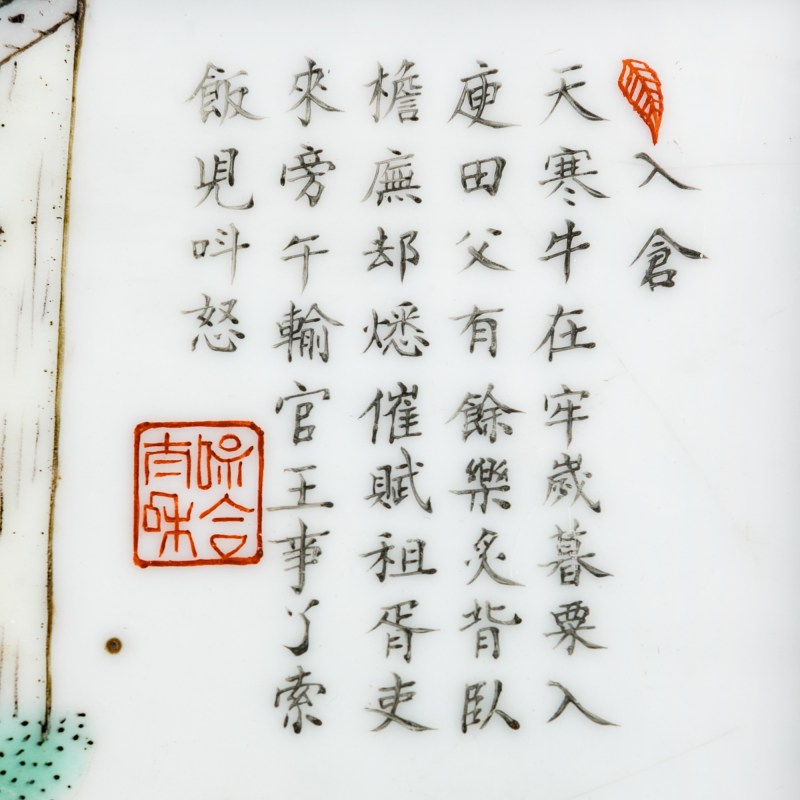 入倉
天寒牛在牢歲暮粟入
庾田父有餘樂炙背臥
檐廡却愁催賦租胥吏
來旁午輸官王事了索
飯兒呌怒